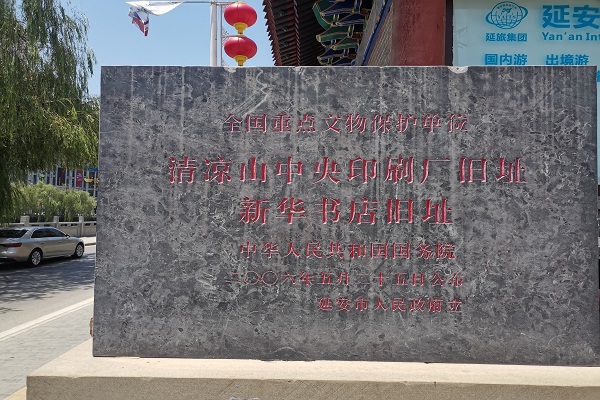 延旅集团
延安
Yan'an Int
国内游 出境游
全国重点文物保护单位
清凉山中央印刷厂旧址
新华书店旧址
中华人民共和国国务院
二〇〇六年五月二十五日公布
延安市人民政府立